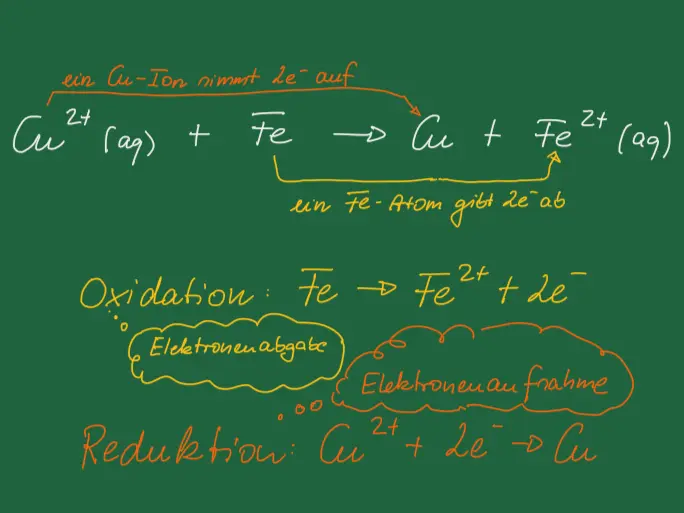 ein Cu-Ion nimmt 2e⁻ auf
Cu²⁺ (aq) + Fe → Cu + Fe²⁺ (aq)
ein Fe-Atom gibt 2e⁻ ab
Oxidation: Fe → Fe²⁺ + 2e⁻
Elektronenabgabe
Elektronenaufnahme
Reduktion: Cu²⁺ + 2e⁻ → Cu